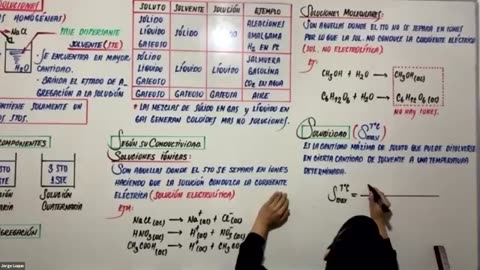 SOLUCIONES
HOMOGÉNEAS)
NaCl
H₂O
FASE DISPERSANTE
SOLVENTE (STE)
SE ENCUENTRA EN MAYOR
CANTIDAD.
BRINDA EL ESTADO DE A-
GREGACIÓN A LA SOLUCIÓN
CONTIENE SOLAMENTE UN
STOS.
COMPONENTES
3 STO
1 STE
SOLUCIÓN
SOLUCIÓN
CUATERNARIA
AGREGACIÓN
SOLUTO SOLVENTE SOLUCIÓN EJEMPLO
SÓLIDO
LÍQUIDO
GASEOSO
SÓLIDO SÓLIDO
ALEACIONES
AMALGAMA
H₂ EN Pt
SÓLIDO
LÍQUIDO
GASEOSO
LÍQUIDO LÍQUIDO
SALMUERA
GASOLINA
CO₂ EN AGUA
GASEOSO GASEOSO GASEOSA AIRE
* LAS MEZCLAS DE SÓLIDO EN GAS Y LÍQUIDO EN
GAS GENERAN COLOIDES MAS NO SOLUCIONES.
SEGÚN SU CONDUCTIVIDAD
SOLUCIONES IÓNICAS:
SON AQUELLAS DONDE EL STO SE SEPARA EN IONES
HACIENDO QUE LA SOLUCIÓN CONDUZCA LA CORRIENTE
ELÉCTRICA (SOLUCIÓN ELECTROLÍTICA)
NaCl(ac) → Na⁺(ac) + Cl⁻(ac)
HNO₃(ac) → H⁺(ac) + NO₃⁻(ac)
CH₃COOH(ac) → H⁺(ac) + CH₃C
SOLUCIONES MOLECULARES:
SON AQUELLAS DONDE EL STO NO SE SEPARA EN IONES
POR LO QUE LA SOL. NO CONDUCE LA CORRIENTE ELÉCTRICA
(SOL. NO ELECTROLÍTICA)
Ej:
CH₃OH + H₂O → CH₃OH(ac)
C₆H₁₂O₆ + H₂O → C₆H₁₂O₆(ac)
NO HAY IONES.
SOLUBILIDAD (S T°C max)
ES LA CANTIDAD MÁXIMA DE SOLUTO QUE PUEDE DISOLVERSE
EN CIERTA CANTIDAD DE SOLVENTE A UNA TEMPERATURA
DETERMINADA.
S T°C max =
Jorge Luque